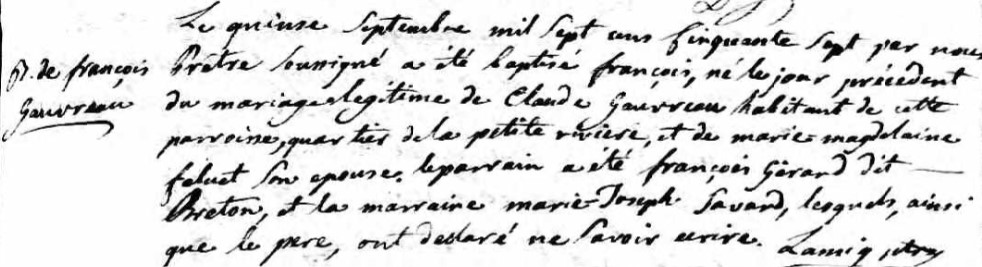 Le quinse Septembre mil Sept cens Cinquante Sept par nous
B. de françois
Gauvreau
Prêtre Soussigné a été baptisé françois, né le jour précedent
du mariage legitime de Claude Gauvreau habitant de cette
parroisse, quartier de la petite riviere, et de marie-magdelaine
feluet Son epouse. le parrain a été françois Gerard dit
Breton, et la marraine marie-Joseph Savard, lesquels, ainsi
que le pere, ont declaré ne Savoir ecrire.